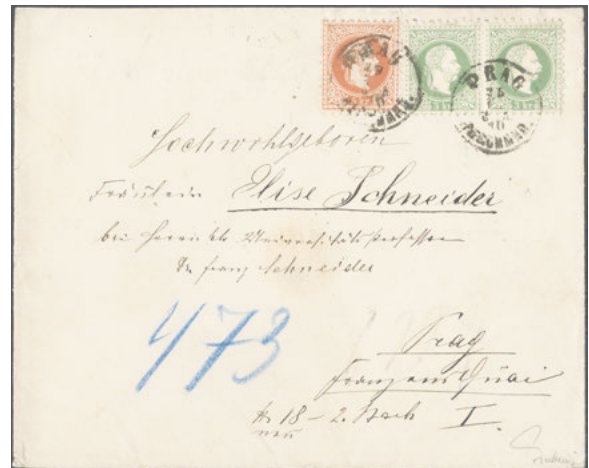 PRAG
PRAG
Hochwohlgeboren
Fräulein Elise Schneider
bei Herrn Universitätsprofessor
Dr Franz Schneider
473
Prag
Franzens Quai
No 18 - 2. Stock I.
neu